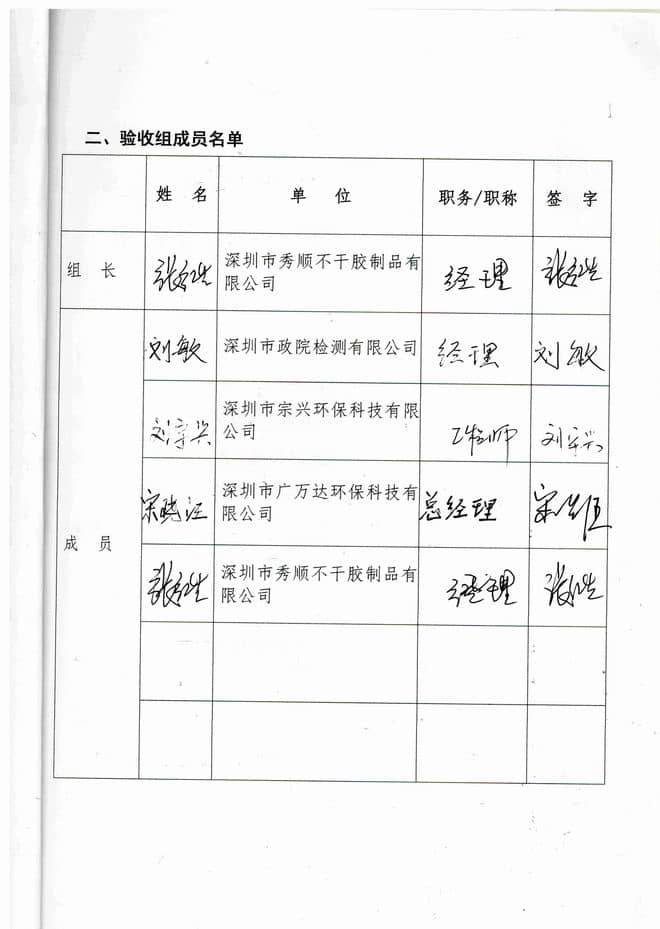 二、验收组成员名单
姓 名 单 位 职务/职称 签 字
组 长 深圳市秀顺不干胶制品有限公司 经理
成 员
刘敏 深圳市政院检测有限公司 经理 刘敏
刘宗兴 深圳市宗兴环保科技有限公司 工程师 刘宗兴
深圳市广万达环保科技有限公司 总经理
深圳市秀顺不干胶制品有限公司 经理